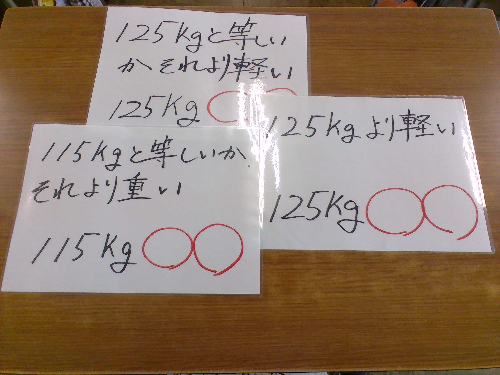 125Kgと等しい
かそれより軽い
125Kg ○○
115Kgと等しいか
それより重い
115Kg ○○
125Kgより軽い
125Kg ○○